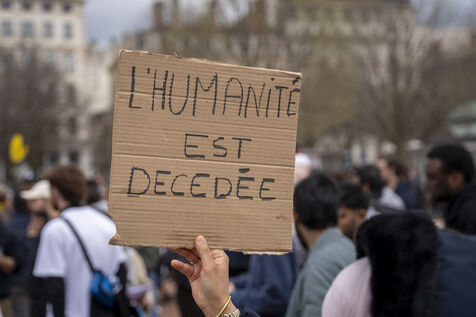 L'HUMANITÉ
EST
DECEDÉE